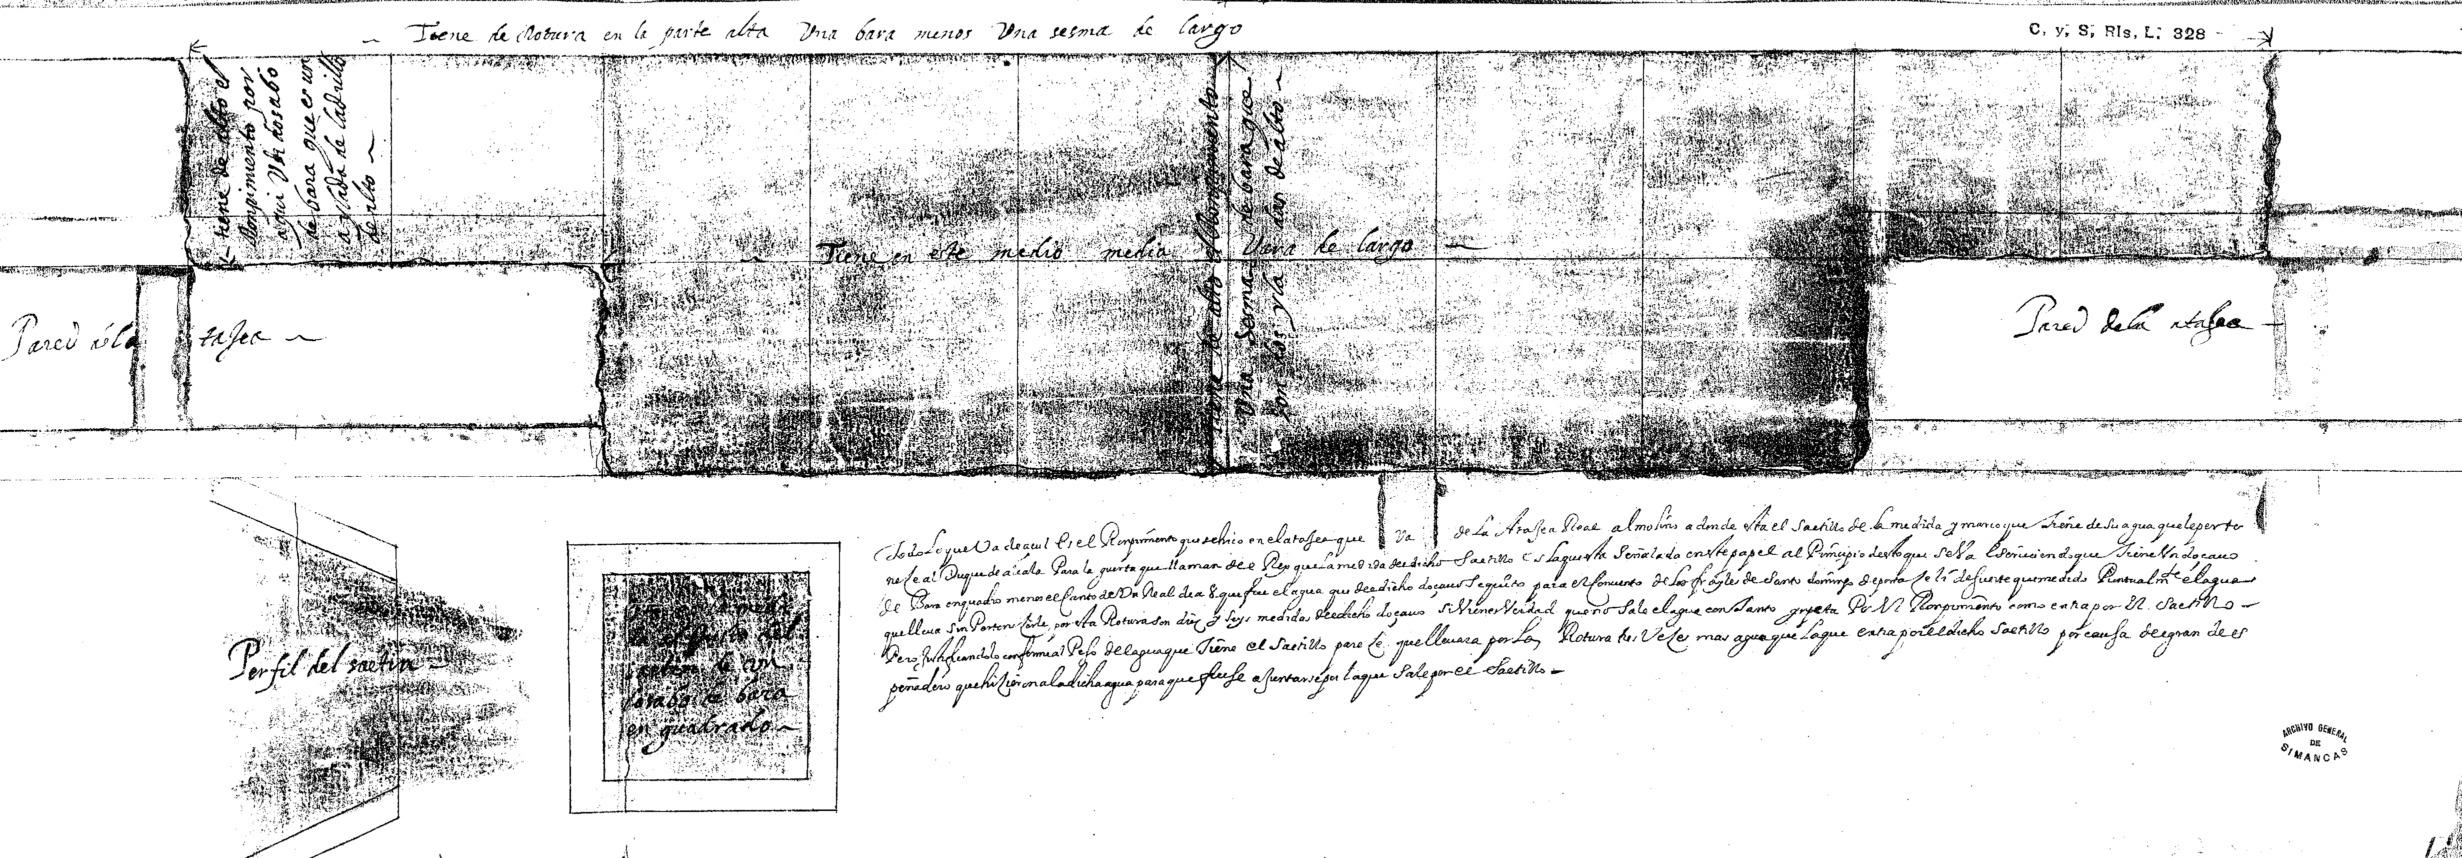 Tiene de Rotura en la parte alta Una bara menos Una sesma de largo
C. y; S; Rls. L; 328
tiene de alto el
Rompimiento por
aqui Un dosabo
de bara que es un
a ylada de ladrillo
de alto
tiene de alto el Rompimiento
Una sesma de bara que
son dos yladas de alto
Tiene en este medio media Vara de largo
Pared de la atajea
Pared dela atajea
Todo Lo que Va de acul Es el Rompimiento que se hico en el atajea que Va de La Atajea Real al molino a donde esta el Saetillo de la medida y marco que tiene de su agua que le perte
nese al Duque de alcala Para la guerta que llaman del Rey que La medida de dicho Saetillo es la questa Señalada en este papel al Principio de lo que se Va Escriuiendo que tiene Un doçauo
de Bara en quadro menos el Canto de Un Real de a 8 que fue el agua que de dicho doçauo se quito para el Conuento de Los frayles de Santo domingo de porta seli de suerte que medido Puntualmte el agua
que lleua por esta Rotura son diez y seys medidas de dicho doçauo Si Viene Verdad que no Sale el agua con tanto por el Rompimiento como entra por el Saetillo
Pero conforme al Peso del agua que tiene el Saetillo pareze que lleuara por La Rotura tres Vezes mas agua que la que entra por el dicho Saetillo por causa del gran des
peñadero que hizieron a la dicha agua para que fuese a Juntarse por la que Sale por el Saetillo
Perfil del saetin
medi
del
saetin de un
dosabo de bara
en quadrado
ARCHIVO GENERAL
DE
SIMANCAS